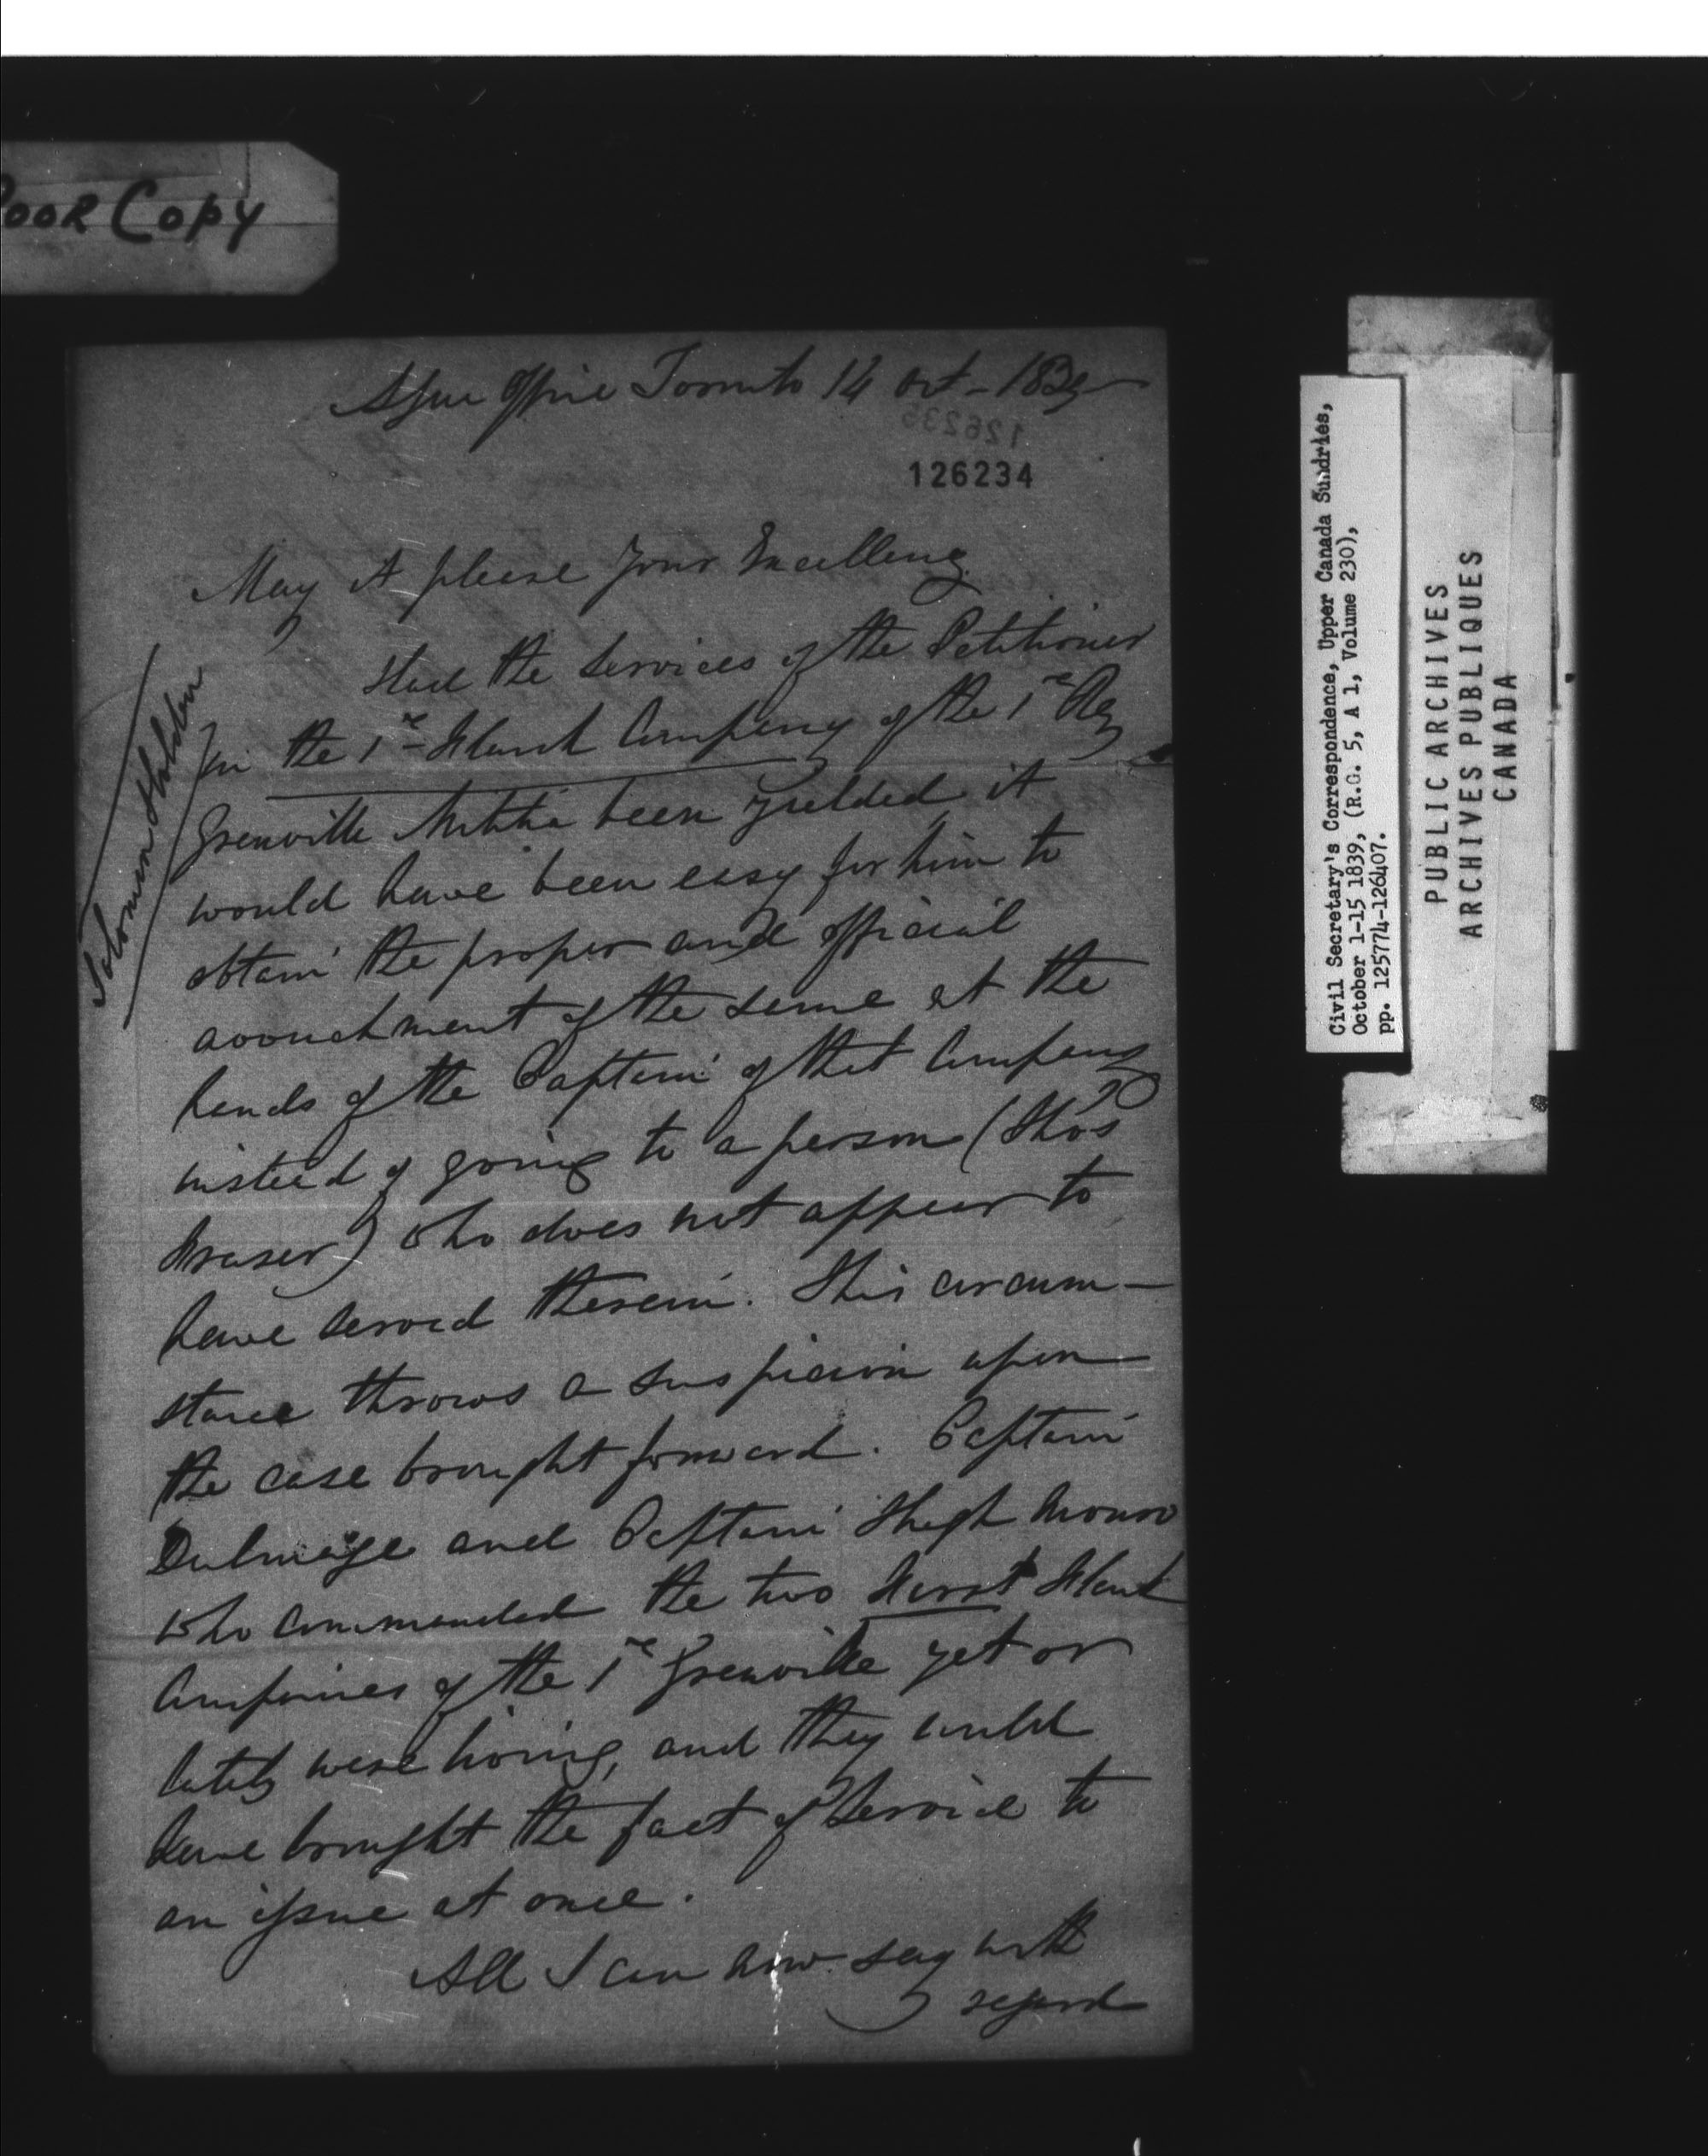 Poor Copy
Office Toronto 14 Oct - 1839
126235
126234
May it please Your Excellency
Had the services of the Petitioner
in the 1st Flank Company of the 1st Reg
Grenville Militia been yielded it
would have been easy for him to
obtain the proper and official
avouchment of the same at the
hands of the Captain of that Company
instead of going to a person (Thos
Fraser) who does not appear to
have served therein. This circum-
stance throws a suspicion upon
the case brought forward. Captain
Dulmage and Captain Hugh Monro
who commanded the two First Flank
Companies of the 1st Grenville yet or
lately were living, and they could
have brought the fact of service to
an issue at once.
All I can now say with
regard
Solomon Holden
Civil Secretary's Correspondence, Upper Canada Sundries,
October 1-15 1839, (R.G. 5, A 1, Volume 230),
pp. 125774-126407.
PUBLIC ARCHIVES
ARCHIVES PUBLIQUES
CANADA